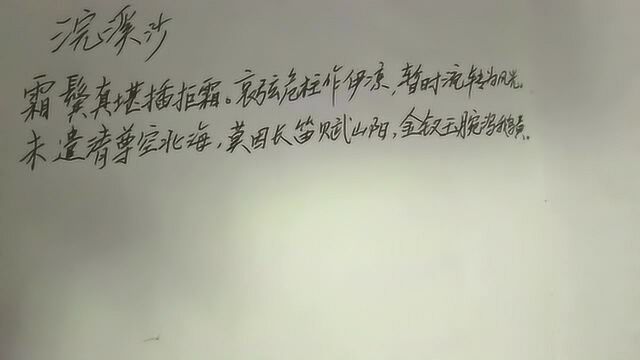 浣溪沙
霜鬓真堪插拒霜。哀弦危柱作伊凉，暂时流转为风光。
未遣清尊空北海，莫因长笛赋山阳，金钗玉腕泻鹅黄。